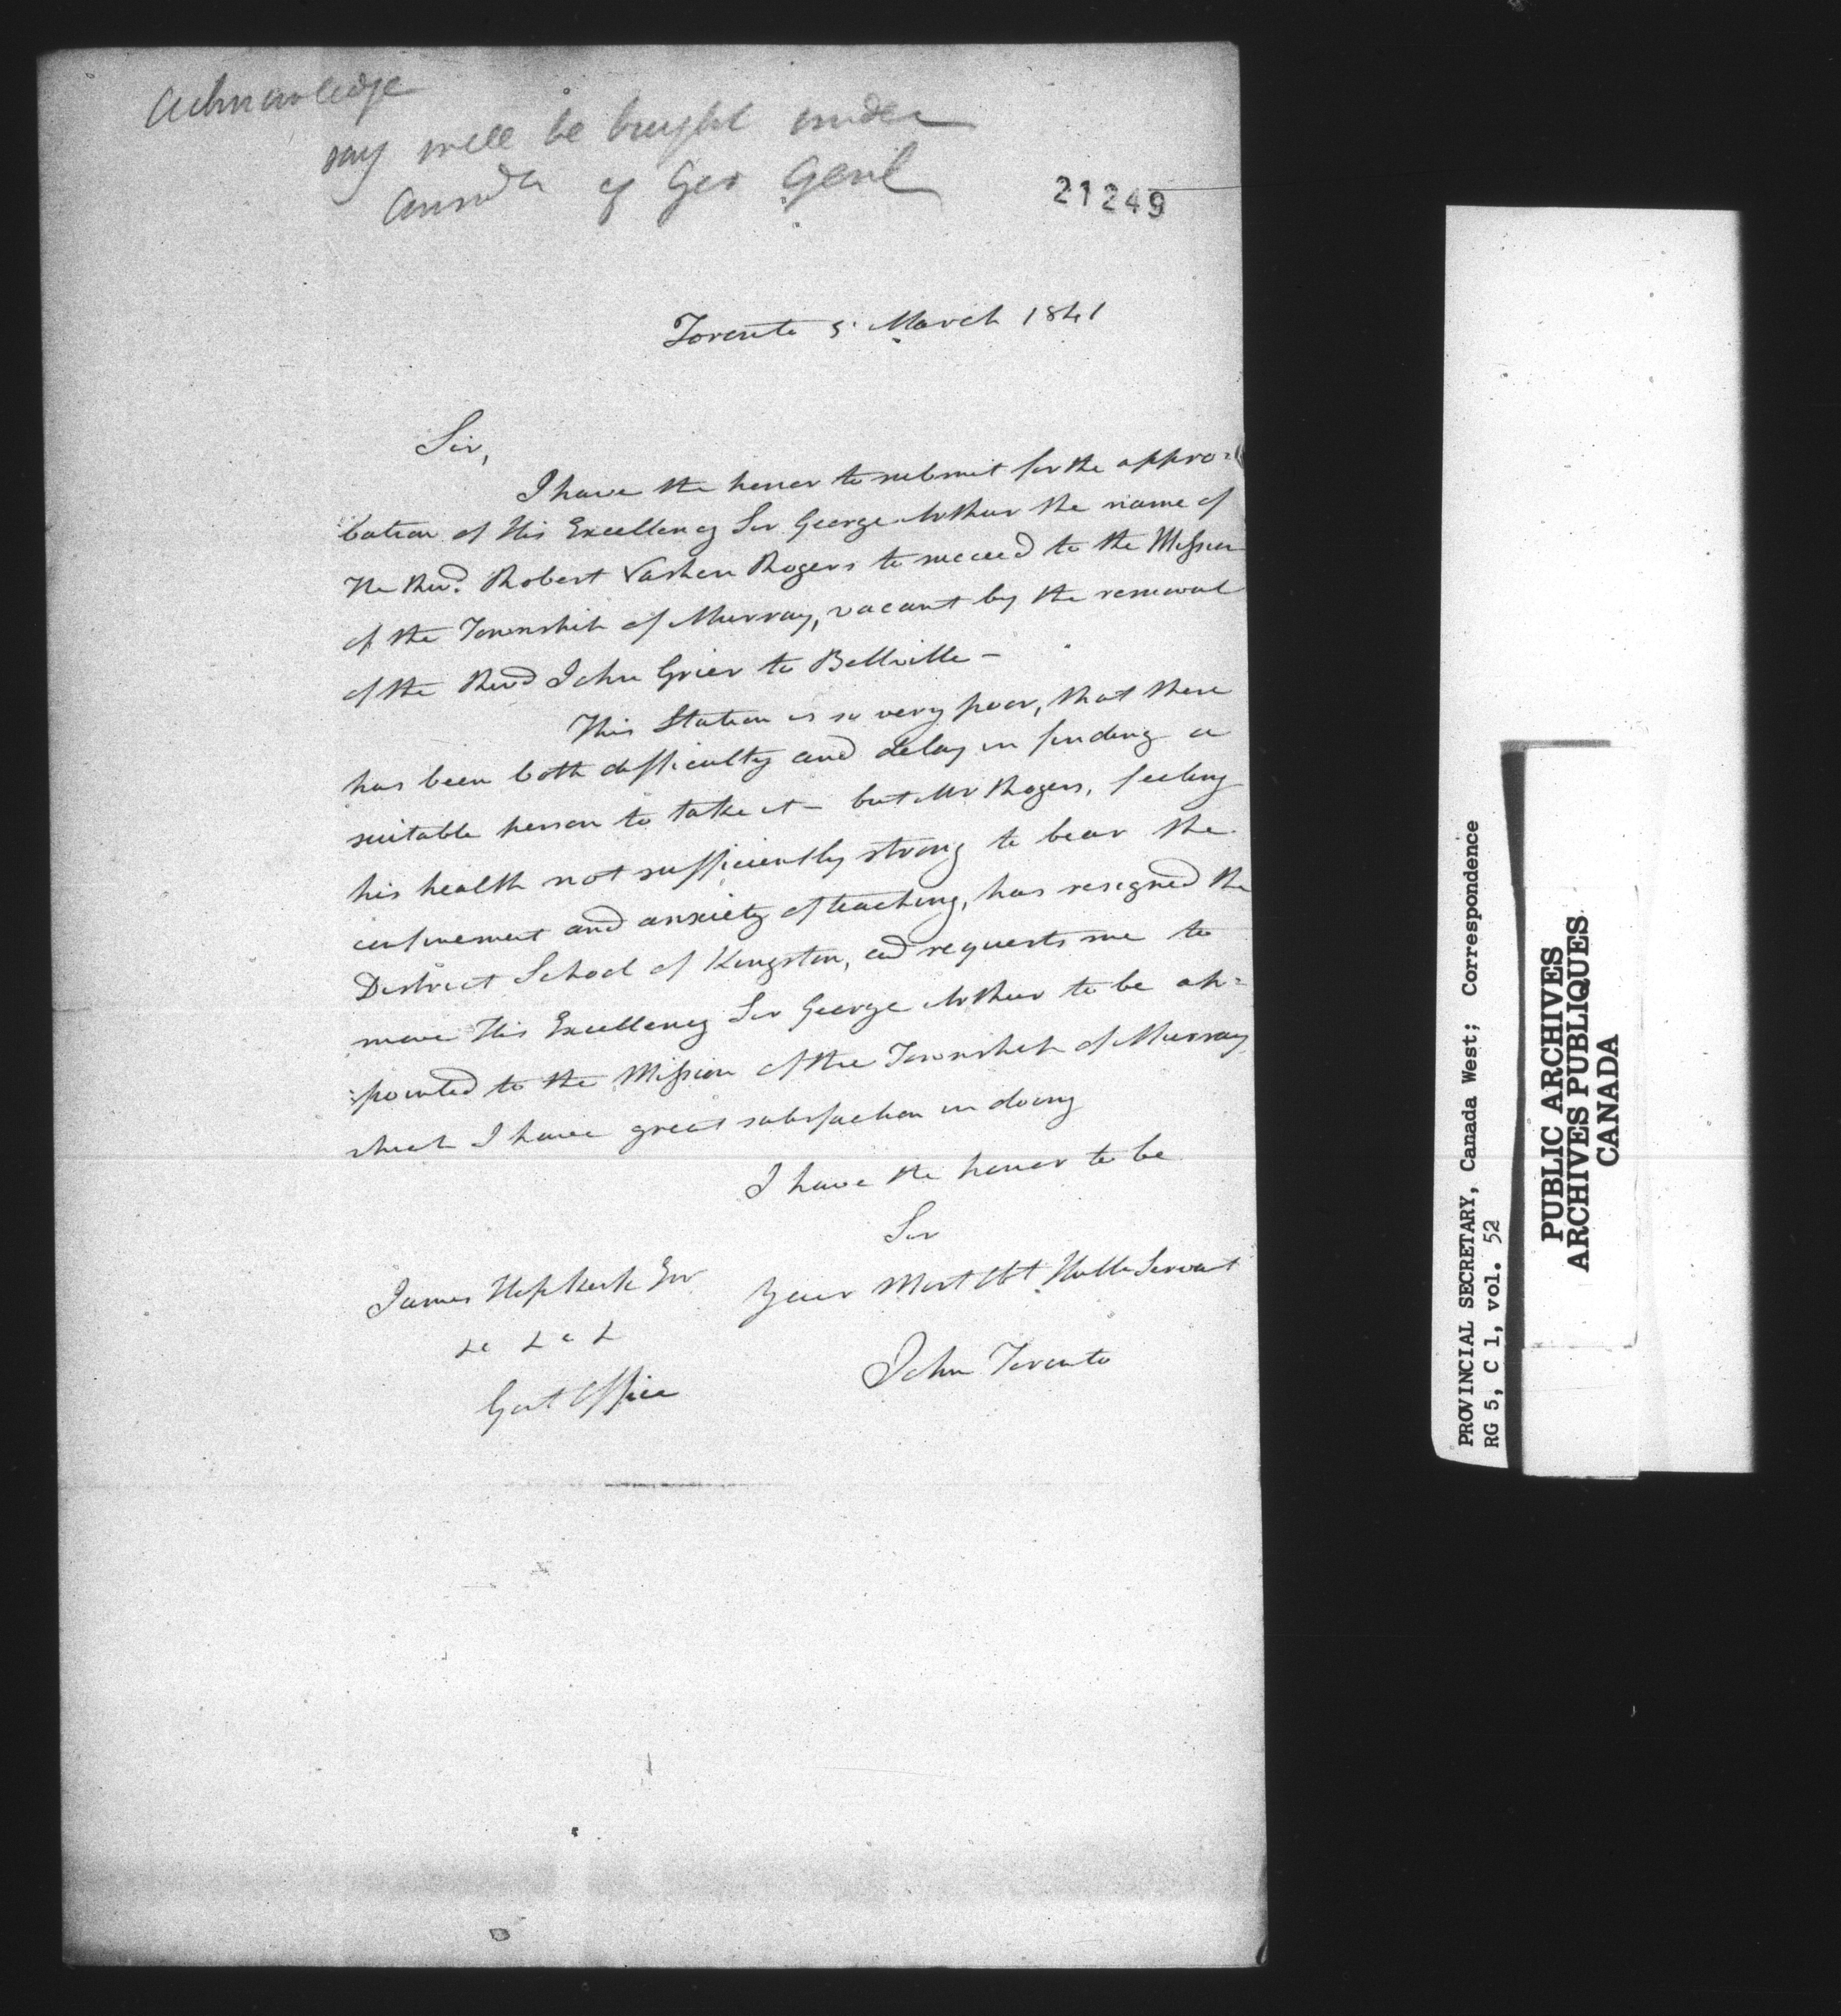 Acknowledge
say will be brought under
consdn of Gov Genl
21249
Toronto 5. March 1841
Sir,
I have the honor to submit for the appro=
:bation of His Excellency Sir George Arthur the name of
the Revd. Robert Vashon Rogers to succeed to the Mission
of the Township of Murray, vacant by the removal
of the Revd John Grier to Bellville —
This Station is so very poor, that there
has been both difficulty and delay in finding a
suitable person to take it — but Mr Rogers, feeling
his health not sufficiently strong to bear the
confinement and anxiety of teaching, has resigned the
District School of Kingston, and requests me to
move His Excellency Sir George Arthur to be ap=
:pointed to the Mission of the Township of Murray
which I have great satisfaction in doing
I have the honor to be
Sir
Your Most Obt Huble Servant
John Toronto
James Hopkirk Esr
&c &c &
Govt Office
PROVINCIAL SECRETARY, Canada West; Correspondence
RG 5, C 1, vol. 52
PUBLIC ARCHIVES
ARCHIVES PUBLIQUES
CANADA